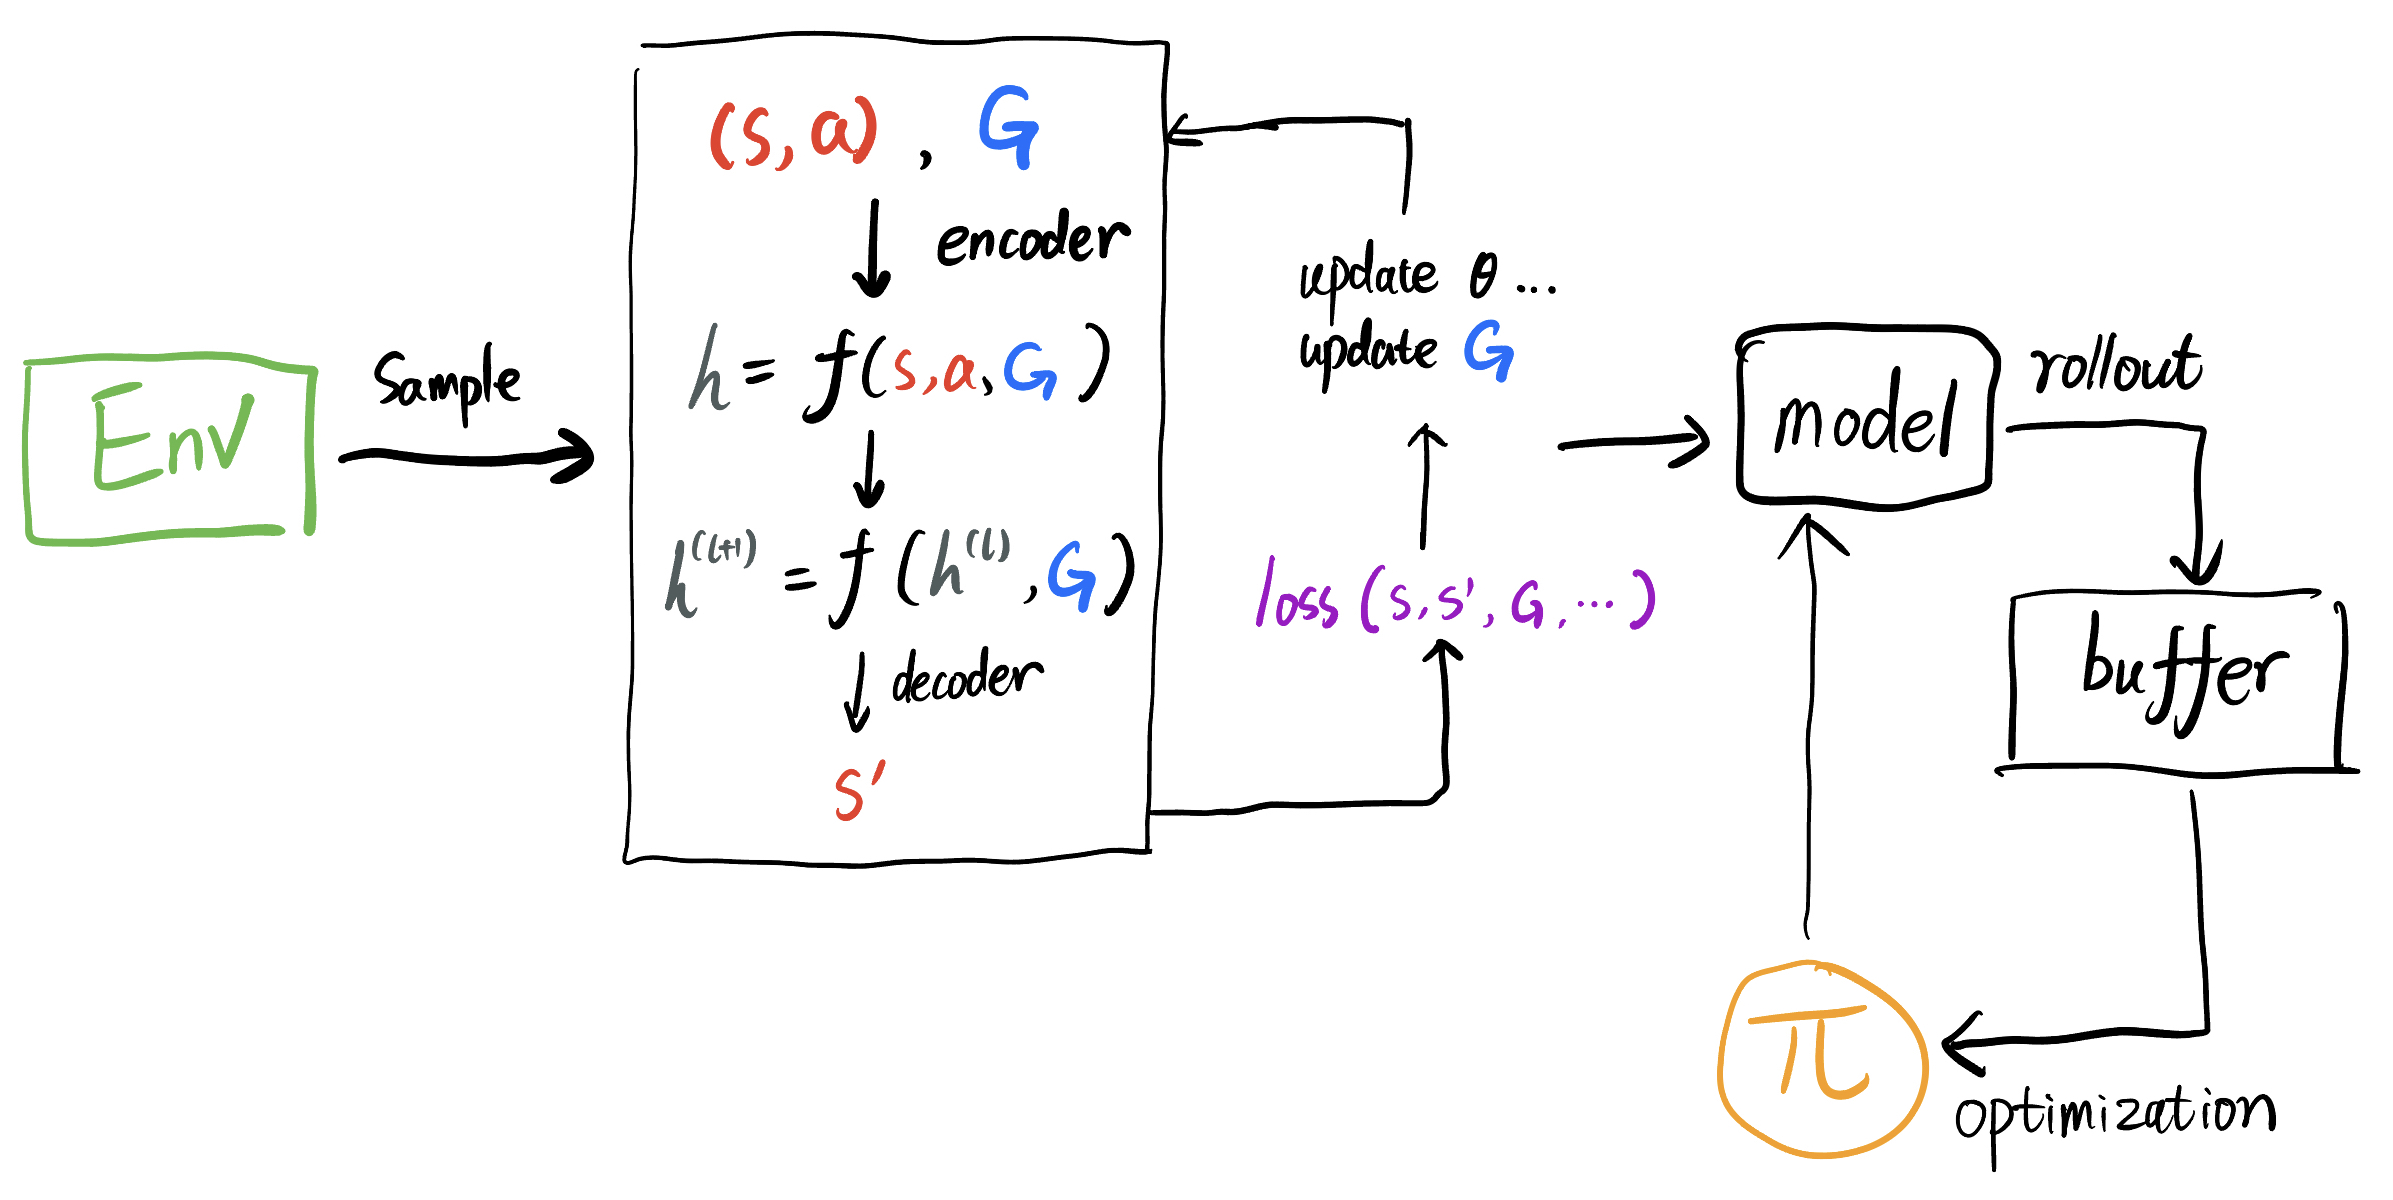 Env
Sample
(s, a) , G
encoder
h = f(s, a, G)
h^(l+1) = f(h^(l), G)
decoder
s'
update θ ...
update G
loss (s, s', G, ...)
model
rollout
buffer
π
optimization